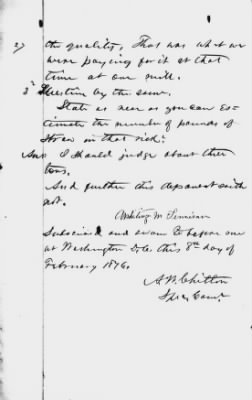 2) the quality. That was what we
were paying for it at that
time at our mill.
3d Question by the same.
State as near as you can es-
timate the number of pounds of
straw in that rick?
Ans I should judge about three
tons.
And further this deponent saith
not.
Subscribed and sworn to before me
at Washington D.C. this 8th day of
February 1876.
A. B. Chilton